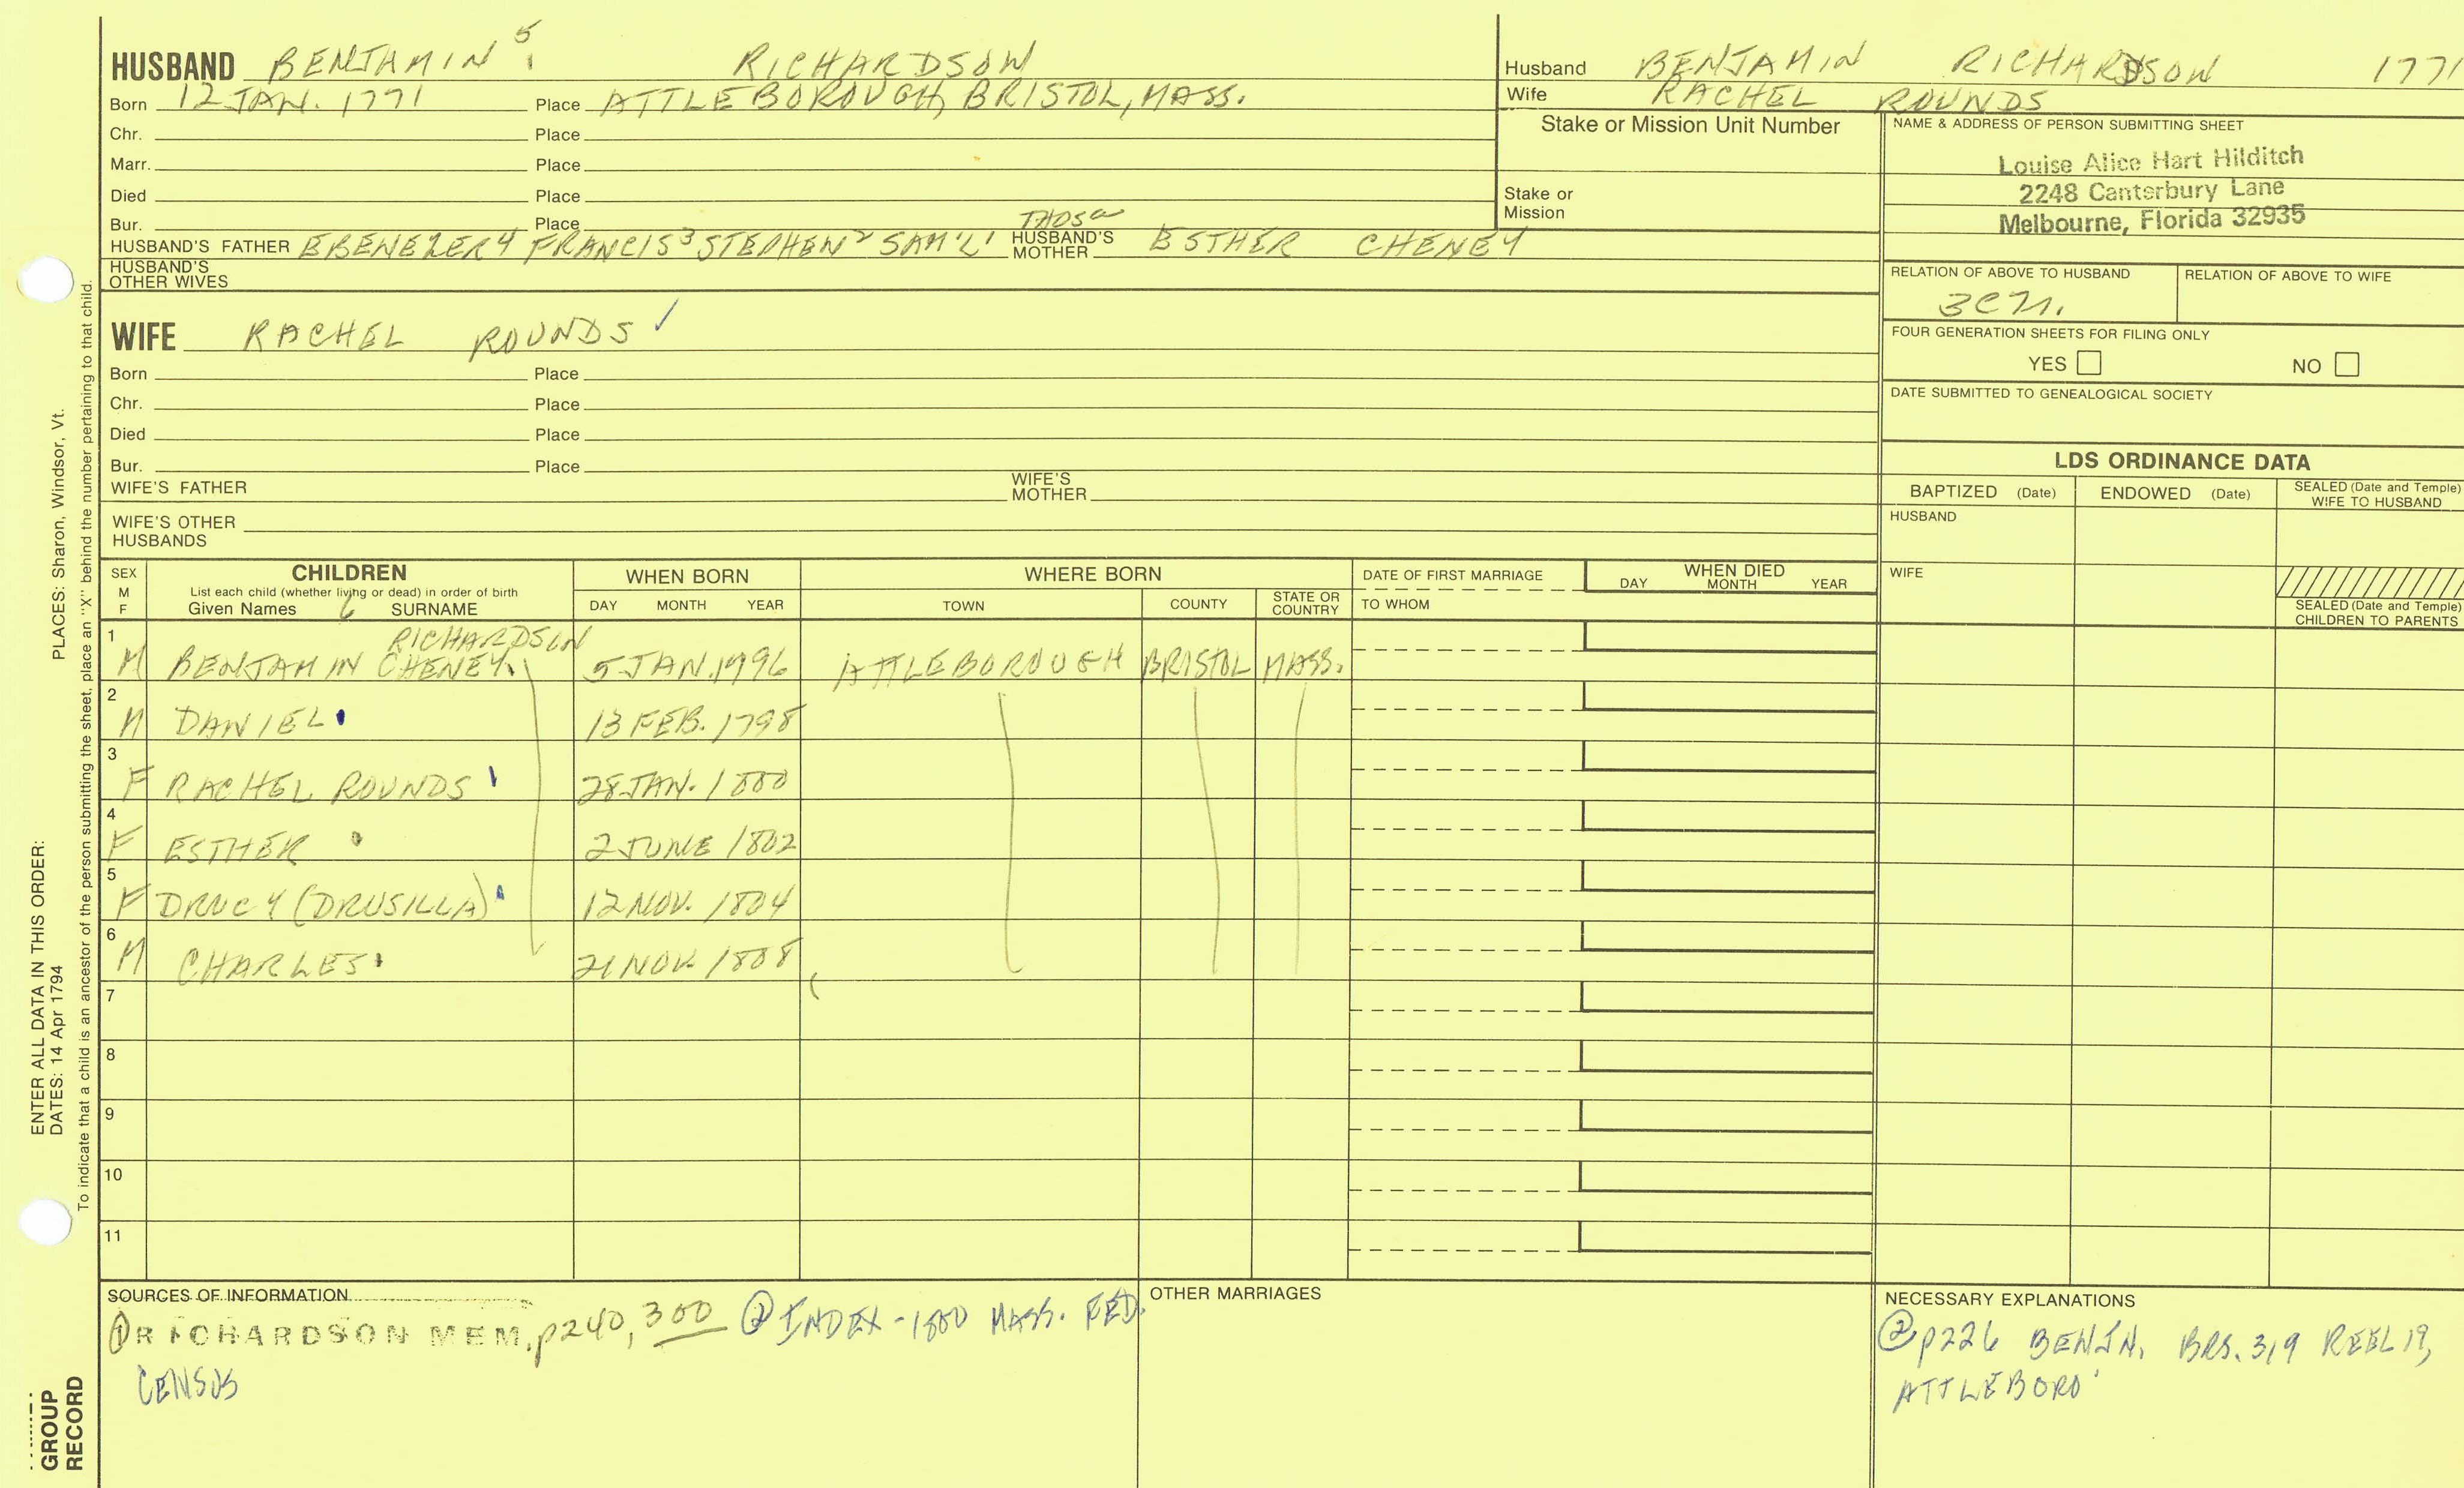 HUSBAND BENJAMIN 5 RICHARDSON
Born 12 JAN. 1771 Place ATTLEBOROUGH, BRISTOL, MASS.
Chr. Place
Marr. Place
Died Place
Bur. Place
HUSBAND'S FATHER EBENEZER 4 FRANCIS 3 STEPHEN 2 SAM'L 1 HUSBAND'S MOTHER ESTHER CHENEY
HUSBAND'S OTHER WIVES
Husband BENJAMIN RICHARDSON 1771
Wife RACHEL ROUNDS
Stake or Mission Unit Number
Stake or Mission
NAME & ADDRESS OF PERSON SUBMITTING SHEET
Louise Alice Hart Hilditch
2248 Canterbury Lane
Melbourne, Florida 32935
RELATION OF ABOVE TO HUSBAND RELATION OF ABOVE TO WIFE
FOUR GENERATION SHEETS FOR FILING ONLY
YES NO
DATE SUBMITTED TO GENEALOGICAL SOCIETY
WIFE RACHEL ROUNDS ✓
Born Place
Chr. Place
Died Place
Bur. Place
WIFE'S FATHER WIFE'S MOTHER
WIFE'S OTHER HUSBANDS
LDS ORDINANCE DATA
BAPTIZED (Date) ENDOWED (Date) SEALED (Date and Temple) WIFE TO HUSBAND
HUSBAND
WIFE
SEALED (Date and Temple) CHILDREN TO PARENTS
SEX M F
CHILDREN
List each child (whether living or dead) in order of birth
Given Names 6 SURNAME
WHEN BORN
DAY MONTH YEAR
WHERE BORN
TOWN COUNTY STATE OR COUNTRY
DATE OF FIRST MARRIAGE
TO WHOM
WHEN DIED
DAY MONTH YEAR
RICHARDSON
1 M BENJAMIN CHENEY 5 JAN. 1796 ATTLEBOROUGH BRISTOL MASS.
2 M DANIEL 13 FEB. 1798
3 F RACHEL ROUNDS 28 JAN. 1800
4 F ESTHER 2 JUNE 1802
5 F DRUCY (DRUSILLA) 12 NOV. 1804
6 M CHARLES 21 NOV. 1808
7
8
9
10
11
SOURCES OF INFORMATION
① RICHARDSON MEM. p240, 300 ② INDEX - 1800 MASS. FED.
CENSUS
OTHER MARRIAGES
NECESSARY EXPLANATIONS
② p226 BENJN. BRS. 319 REEL 19,
ATTLEBORO'
ENTER ALL DATA IN THIS ORDER:
DATES: 14 Apr 1794 PLACES: Sharon, Windsor, Vt.
To indicate that a child is an ancestor of the person submitting the sheet, place an "X" behind the number pertaining to that child.
GROUP
RECORD